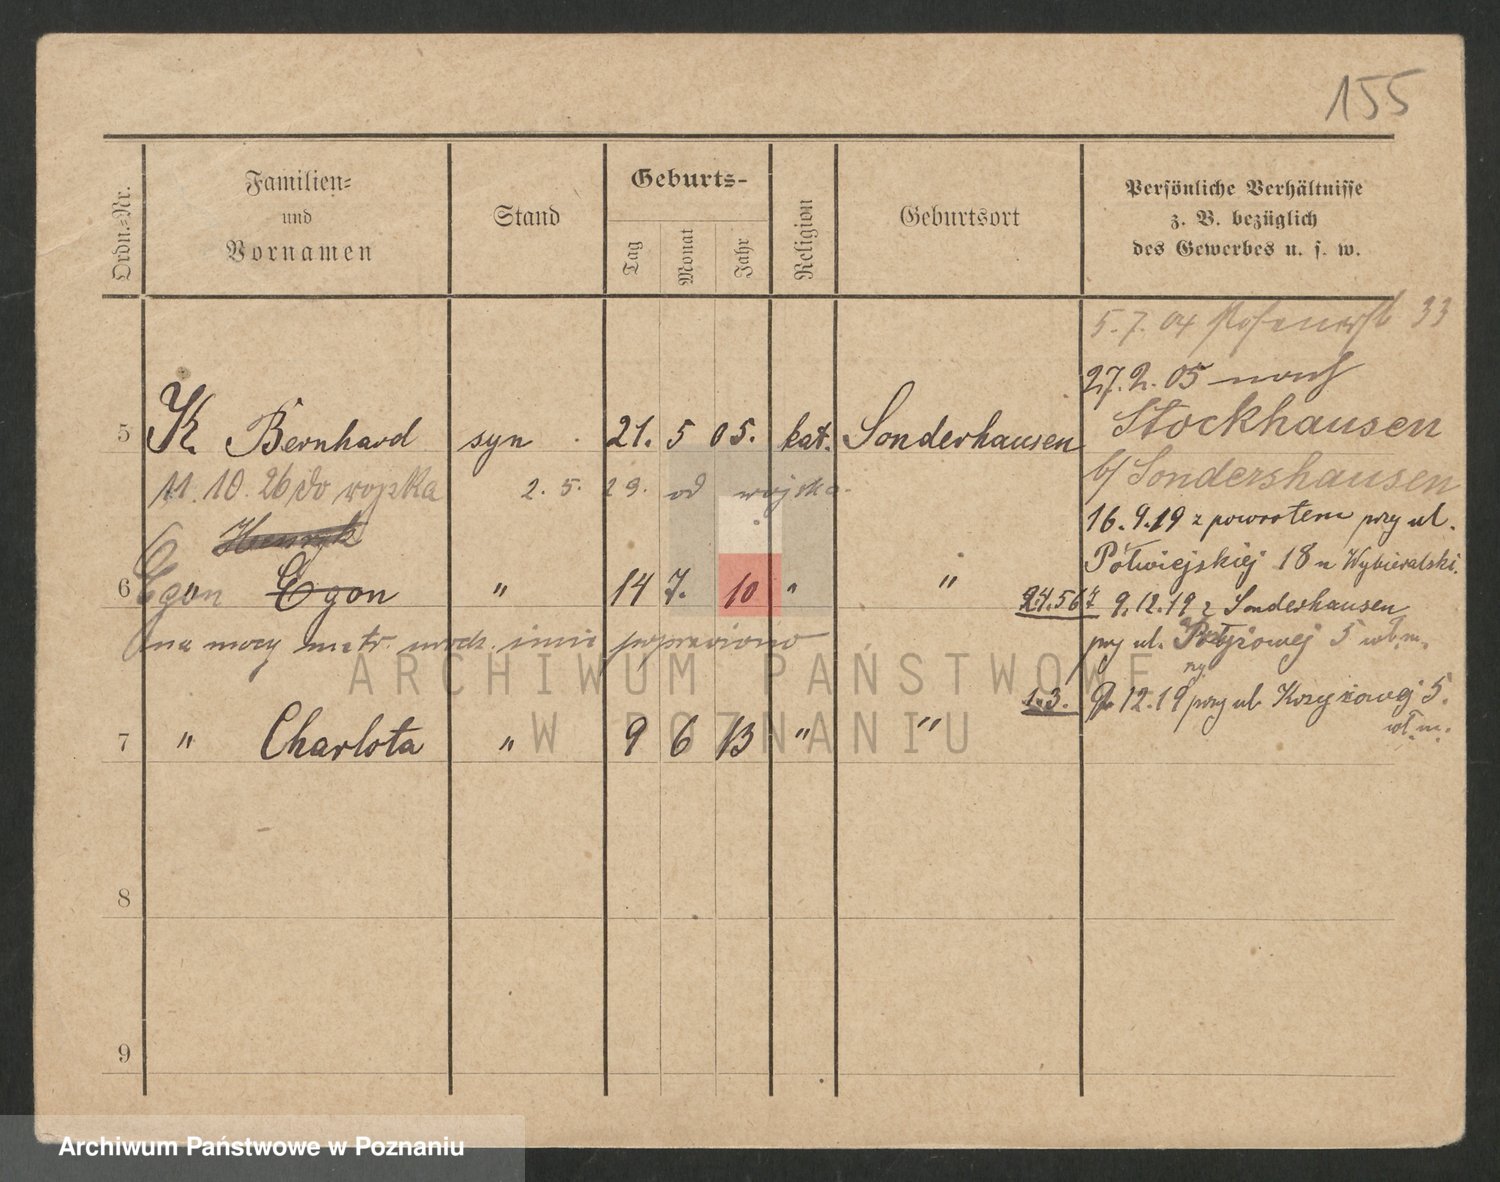 155
Ordn.-Nr.
Familien-
und
Vornamen
Stand
Geburts-
Tag
Monat
Jahr
Religion
Geburtsort
Persönliche Verhältnisse
z. B. bezüglich
des Gewerbes u. s. w.
5.7.04 Posenerstr 33
27.2.05 nach
Stockhausen
b/ Sondershausen
5 K. Bernhard syn 21. 5 05. kat. Sonderhausen
11.10.26 do wojska 2. 5. 29. od wojska.
16.9.19 z powrotem przy ul.
Półwiejskiej 18 u Wybieralski.
Henryk
6 Egon " Egon " 14 7. 10 " "
1, 2, 4, 5 6 7 9.12.19 z Sonderhausen
na mocy metr. urodz. imię poprawiono
przy ul. 5 wł. m.
1.3. 9.12.19 przy ul. Krzyżowej 5.
wł. m.
7 " Charlota " 9 6 13 " "
8
9
ARCHIWUM PAŃSTWOWE
W POZNANIU
Archiwum Państwowe w Poznaniu